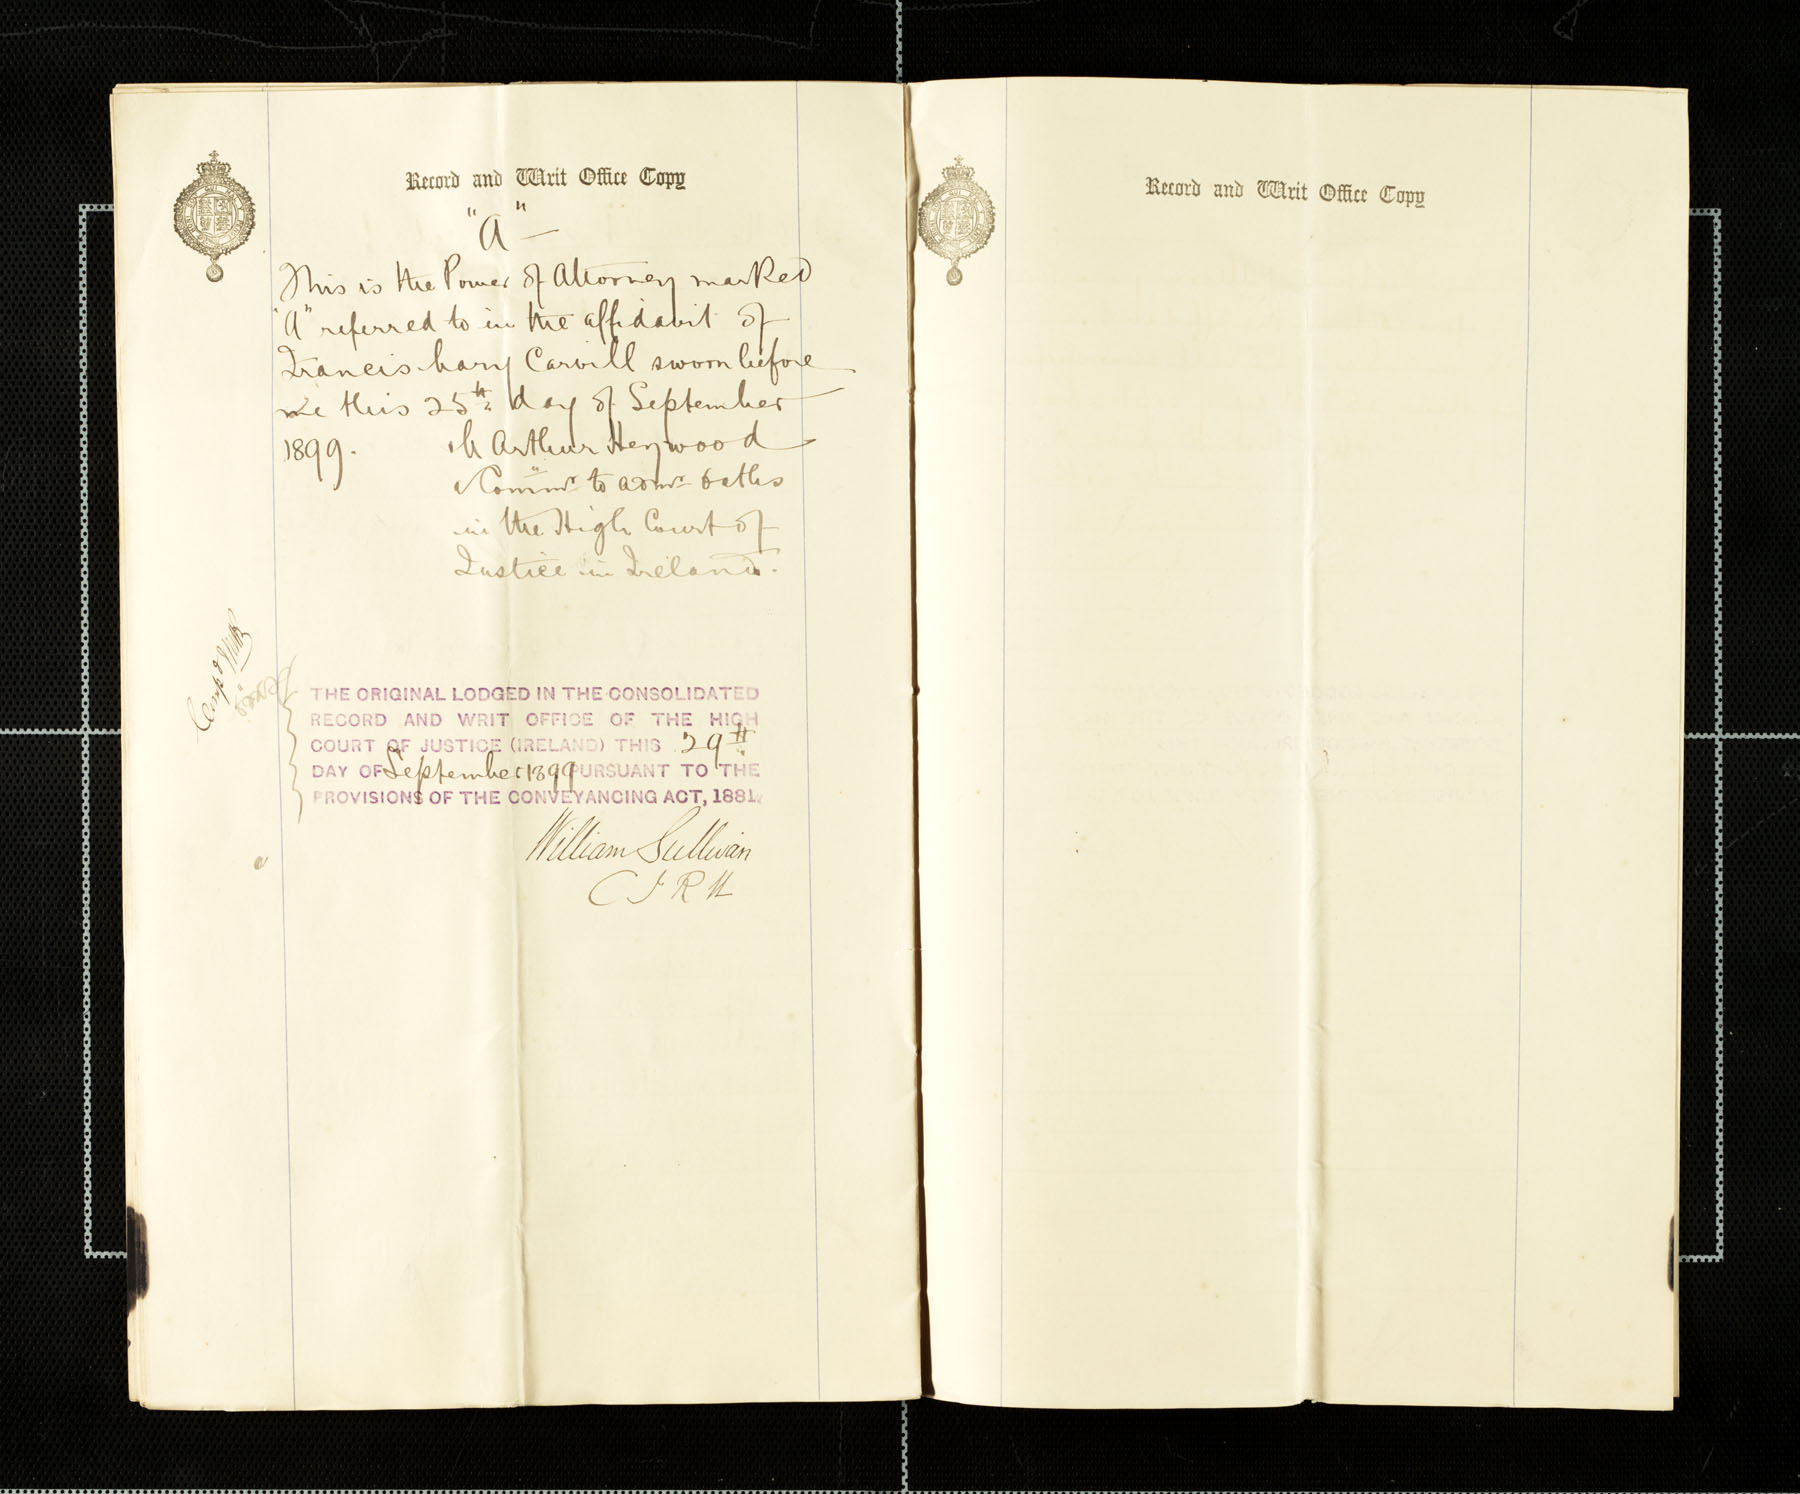 Record and Writ Office Copy
"A"—
This is the Power of Attorney marked
"A" referred to in the affidavit of
Francis Mary Carvill sworn before
me this 25th day of September
1899. M Arthur Heywood
a Commr to admr oaths
in the High Court of
Justice in Ireland.
Compd
THE ORIGINAL LODGED IN THE CONSOLIDATED
RECORD AND WRIT OFFICE OF THE HIGH
COURT OF JUSTICE (IRELAND) THIS 29th
DAY OF September 1899 PURSUANT TO THE
PROVISIONS OF THE CONVEYANCING ACT, 1881.
William Sullivan
Record and Writ Office Copy